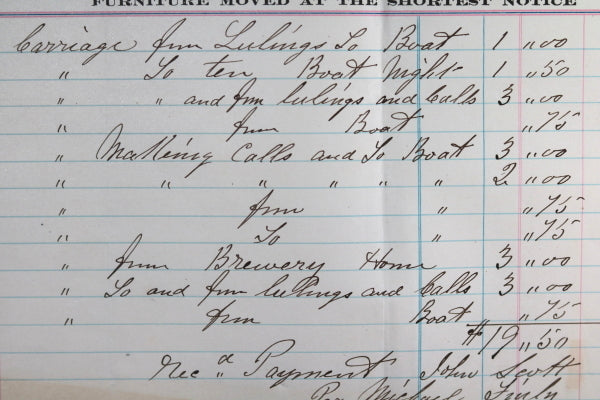 FURNITURE MOVED AT THE SHORTEST NOTICE
Carriage from Lulings To Boat 1 " 00
" To ten Boat Night 1 " 50
" " and from lulings and Calls 3 " 00
" from Boat " 75
" Making Calls and To Boat 3 " 00
" " " " " " 2 " 00
" from " " 75
" To " " 75
" from Brewery Home 3 " 00
" To and from lulings and Calls 3 " 00
" from Boat " 75
$19 " 50
Rec"d Payment John Scott
Per Michael